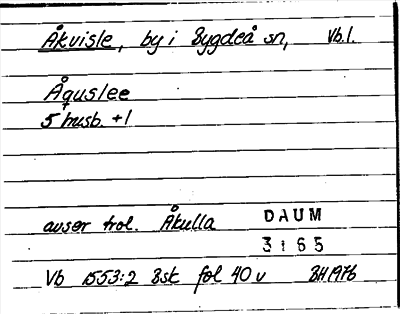 Åkvisle, by i Bygdeå sn, Vb.l.
Åguslee
5 husb. +1
avser trol. Åkulla
DAUM
3165
Vb 1553:2 Bsk fol 40 v BH 1976